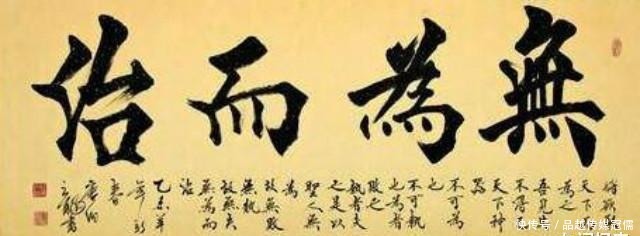 無為而治
將欲取
天下而
為之
吾見其
不得已
天下神
器
不可為
也
不可執
也為者
敗之
執者失
之是以
聖人無
為
故無敗
無執
故無失
無為而
治
乙未羊
年初
春
快传号 / 品越传媒冠儒